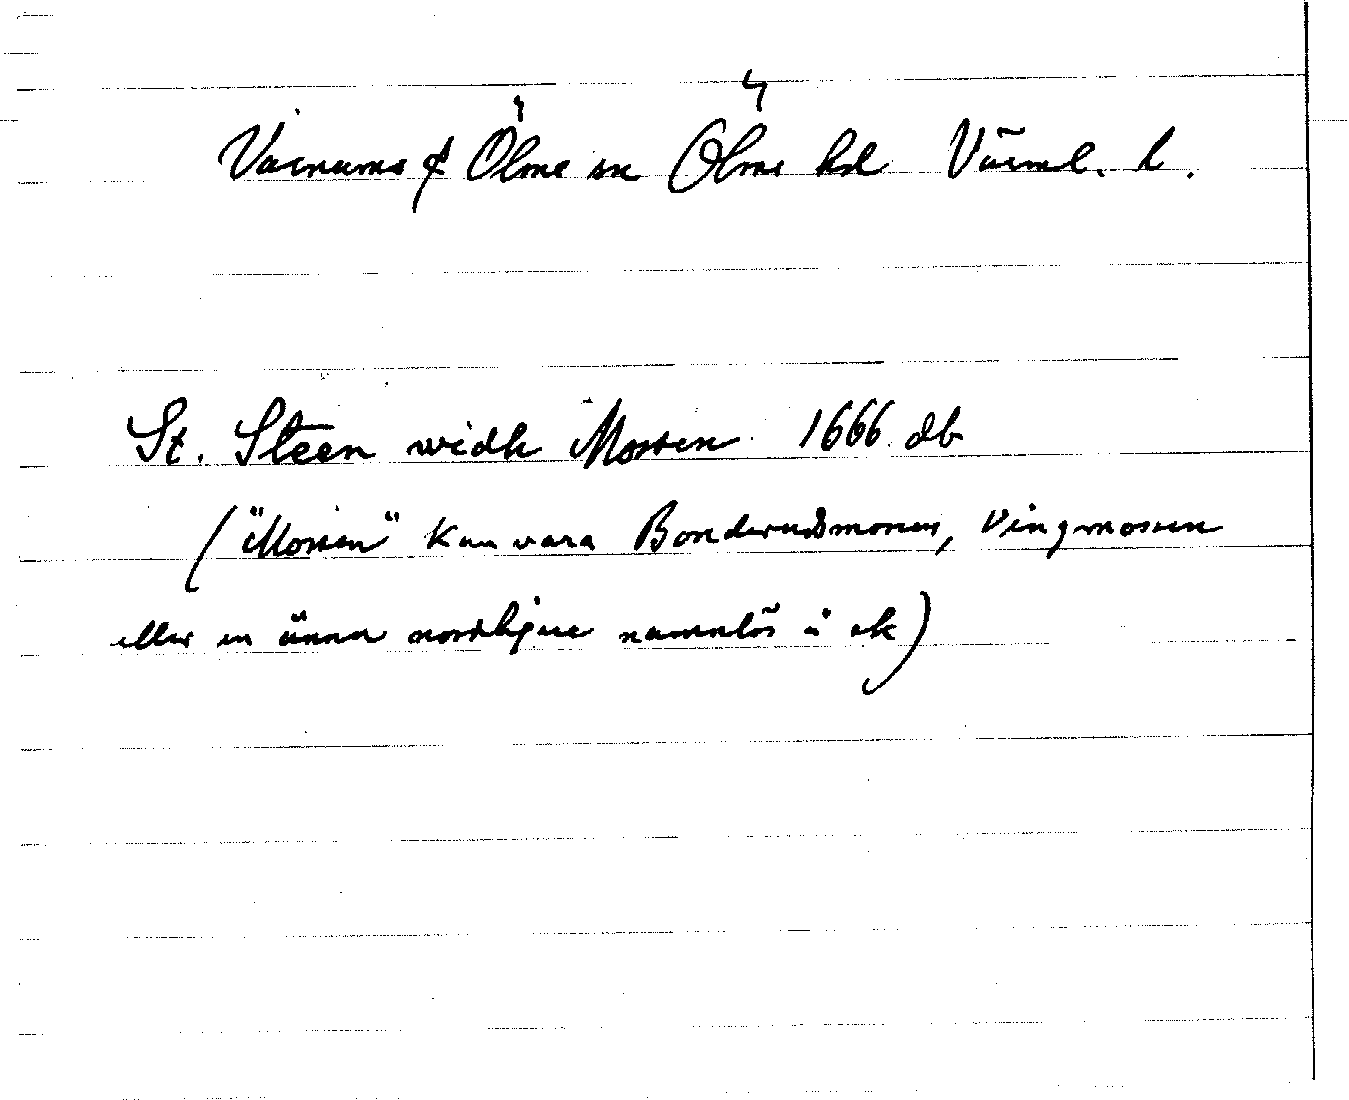 Varnums & Ölme sn Ölme hd Värml. l.
St. Steen widh Mossen 1666 db
("Mossen" kan vara Bonderudsmossen, Vingmossen
eller en ännu nordligare namnlös å ek)